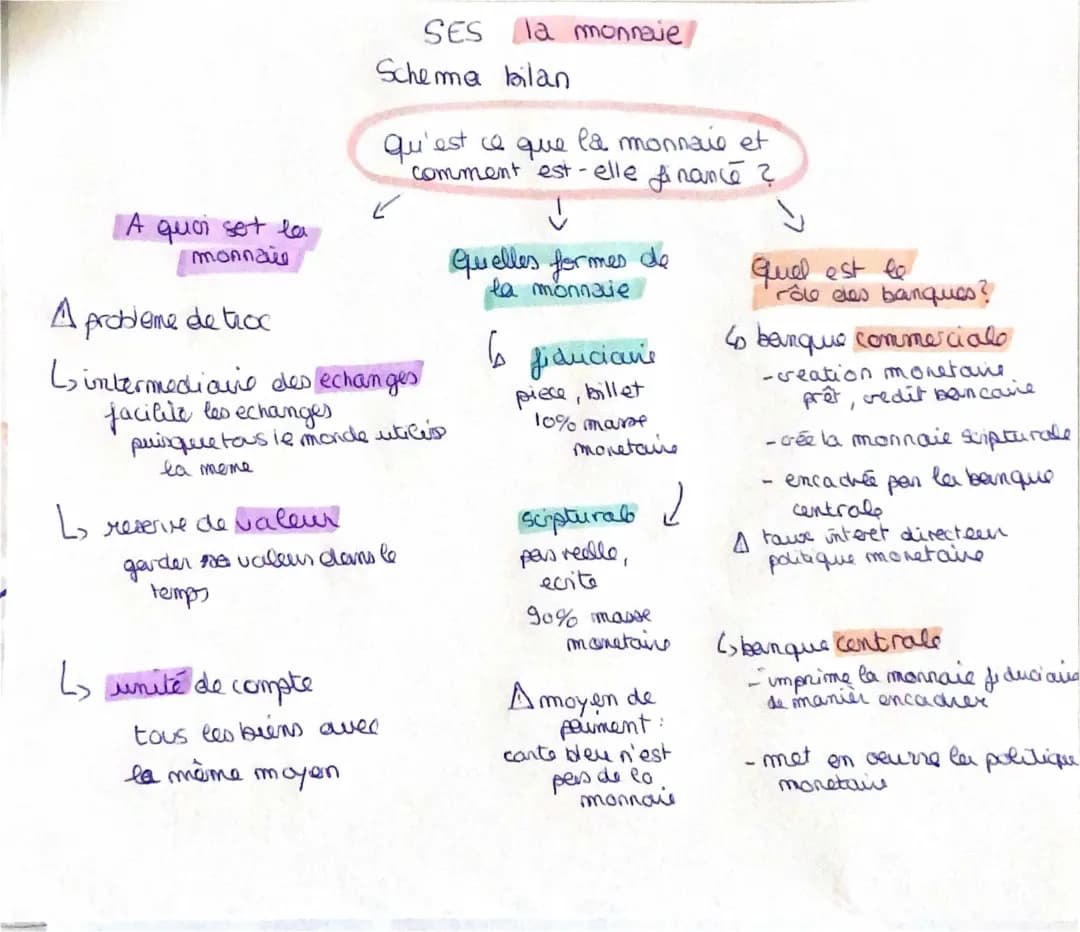 SES la monnaie
Schema bilan
Qu'est ce que la monnaie et
comment est-elle financé ?
A quoi set la
monnaie
⚠ probleme de troc
↳ intermediaire des echanges
facilite les echanges
puisque tous le monde utilise
la meme
↳ reserve de valeur
garder sa valeur dans le
temps
↳ unité de compte
tous les biens avec
la même moyen
Quelles formes de
la monnaie
↳ fiduciaire
piece, billet
10% masse
monetaire
scripturale
pas reelle,
ecrite
90% masse
monetaire
⚠ moyen de
paiment :
carte bleu n'est
pas de la
monnaie
Quel est le
rôle des banques ?
↳ banque commerciale
- creation monetaire
prêt, credit bancaire
- crée la monnaie scripturale
- encadrée par la banque
centrale
⚠ taux interet directeur
politique monetaire
↳ banque centrale
- imprime la monnaie fiduciaire
de manièr encadrer
- met en oeuvre la politique
monetaire